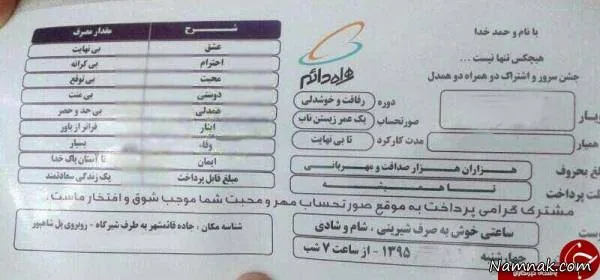 با نام و حمد خدا
هیچکس تنها نیست ...
جشن سرور و اشتراک دو همراه دو همدل
همراه دائم
دوره رفاقت و خوشدلی
صورتحساب یک عمر زیستن ناب
مدت کارکرد تا بی نهایت
همیار
هزاران هزار صداقت و مهربانی
پرداخت تا همیشه
شرح مقدار مصرف
عشق بی نهایت
احترام بی کرانه
محبت بی توقع
دوستی بی منت
همدلی بی حد و حصر
ایثار فراتر از باور
وفاء بسیار
ایمان تا آستان پاک خدا
مبلغ قابل پرداخت یک زندگی سعادتمند
مشترک گرامی پرداخت به موقع صورتحساب مهر و محبت شما موجب شوق و افتخار ماست.
ساعتی خوش به صرف شیرینی ، شام و شادی
چهارشنبه ۱۳۹۵ - از ساعت ۷ شب
شناسه مکان : جاده قائمشهر به طرف شیرگاه - روبروی پل شاهپور
Namnak.com